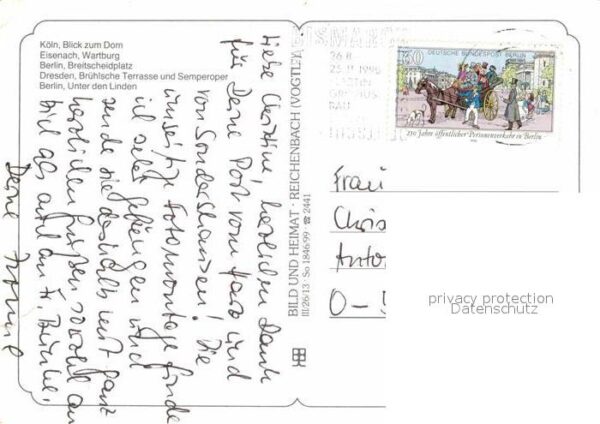 Köln, Blick zum Dom
Eisenach, Wartburg
Berlin, Breitscheidplatz
Dresden, Brühlsche Terrasse und Semperoper
Berlin, Unter den Linden
Liebe Christine, herzlichen Dank
für Deine Post vom Harz und
von Sondershausen! Die
umseitige Fotomontage finde
ich sehr gelungen und
sende sie deshalb mit ganz
herzlichen Grüßen sowohl an
Dich als auch an Fr.
Deine
BILD UND HEIMAT · REICHENBACH (VOGTL)
III/26/13 · So 1846/99 ☎ 2441
DEUTSCHE BUNDESPOST BERLIN
60
250 Jahre öffentlicher Personenverkehr in Berlin
Frau
Chris
Anto
O-5
privacy protection
Datenschutz